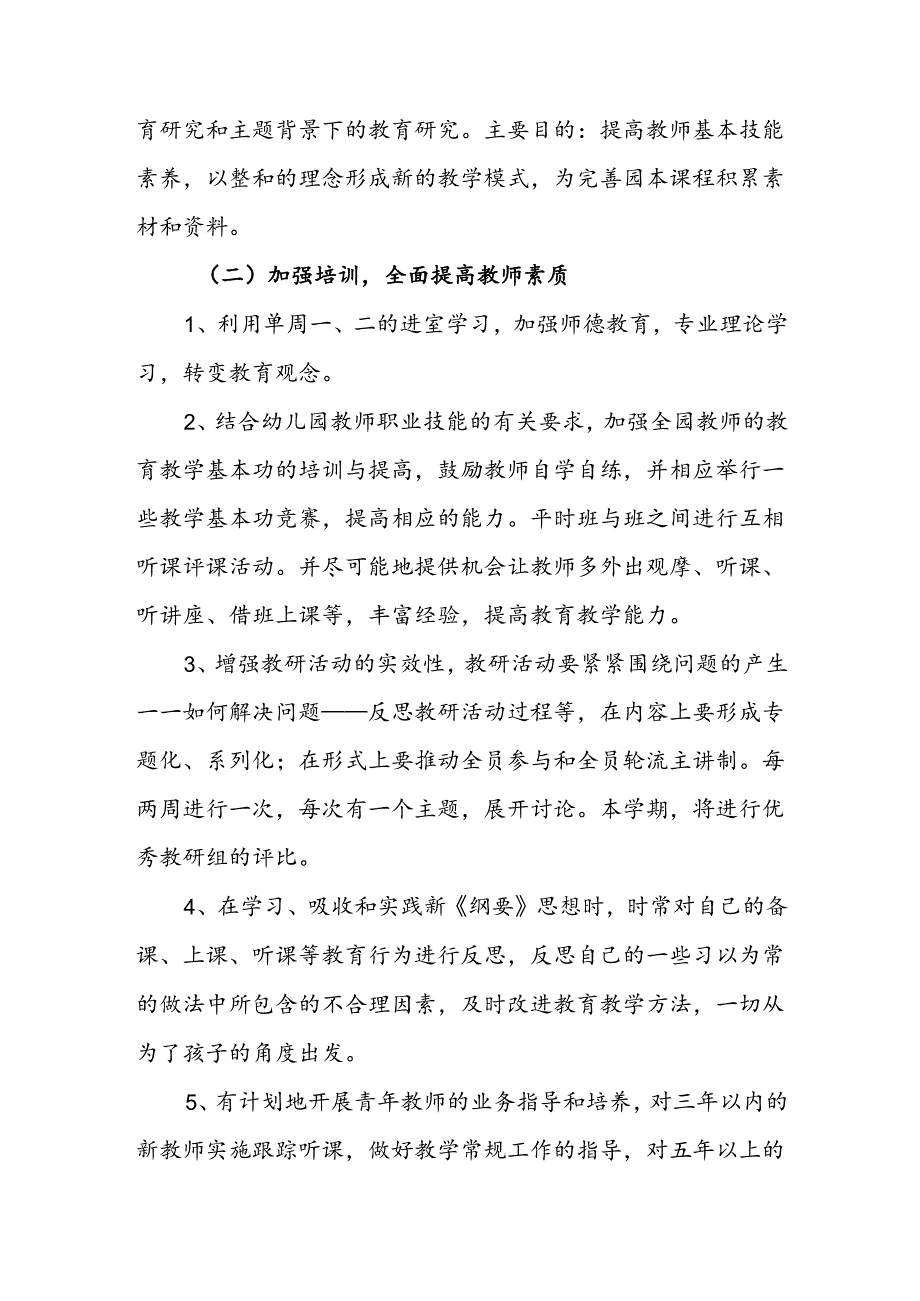 育研究和主题背景下的教育研究。主要目的：提高教师基本技能
素养，以整和的理念形成新的教学模式，为完善园本课程积累素
材和资料。
（二）加强培训，全面提高教师素质
1、利用单周一、二的进室学习，加强师德教育，专业理论学
习，转变教育观念。
2、结合幼儿园教师职业技能的有关要求，加强全园教师的教
育教学基本功的培训与提高，鼓励教师自学自练，并相应举行一
些教学基本功竞赛，提高相应的能力。平时班与班之间进行互相
听课评课活动。并尽可能地提供机会让教师多外出观摩、听课、
听讲座、借班上课等，丰富经验，提高教育教学能力。
3、增强教研活动的实效性，教研活动要紧紧围绕问题的产生
一一如何解决问题——反思教研活动过程等，在内容上要形成专
题化、系列化；在形式上要推动全员参与和全员轮流主讲制。每
两周进行一次，每次有一个主题，展开讨论。本学期，将进行优
秀教研组的评比。
4、在学习、吸收和实践新《纲要》思想时，时常对自己的备
课、上课、听课等教育行为进行反思，反思自己的一些习以为常
的做法中所包含的不合理因素，及时改进教育教学方法，一切从
为了孩子的角度出发。
5、有计划地开展青年教师的业务指导和培养，对三年以内的
新教师实施跟踪听课，做好教学常规工作的指导，对五年以上的